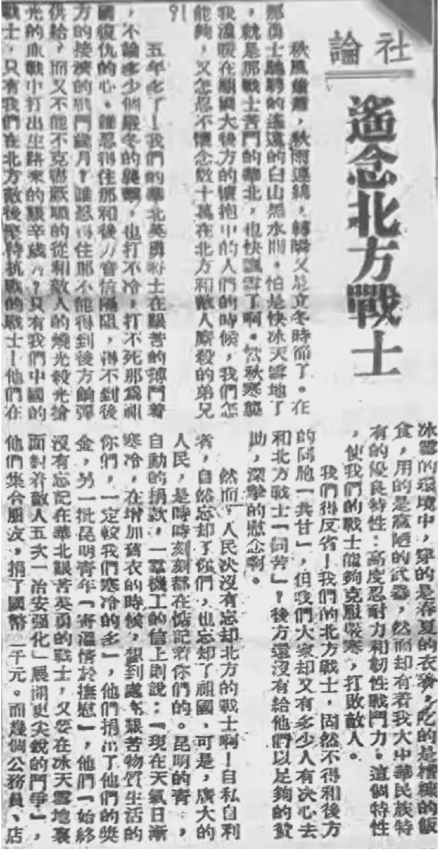 社論
遙念北方戰士
秋風蕭蕭，秋雨連綿，轉瞬又是立冬時節了。在
那勇士馳騁的遙遠的白山黑水間，怕是快冰天雪地了
，就是那戰士苦鬥的華北，也快飄雪了啊。當秋寒襲
我溫暖在祖國大後方的懷抱中的人們的時候，我們怎
能夠，又怎忍不懷念數十萬在北方和敵人廝殺的弟兄
91
五年多了！我們的華北英勇戰士在艱苦的搏鬥着
，不論多少個嚴冬的襲擊，也打不冷，打不死那爲祖
國復仇的心。誰忍得住那和後方音信隔阻，得不到後
方的接濟的戰鬥歲月？誰忍得住那不能得到後方餉彈
供給，而又不能不克盡厥職的從和敵人的燒光殺光搶
光的血戰中打出生路來的艱辛歲月？只有我們中國的
戰士，只有我們在北方敵後堅持抗戰的戰士！他們在
冰雪的環境中，穿的是春夏的衣裳，吃的是糟糠的飯
食，用的是窳陋的武器，然而却有着我大中華民族特
有的優良特性：高度忍耐力和韌性戰鬥力。這個特性
，使我們的戰士能夠克服嚴寒，打敗敵人。
我們得反省！我們的北方戰士，固然不得和後方
的同胞「共甘」，但我們大家却又有多少人有决心去
和北方戰士「同苦」？後方還沒有給他們以足夠的資
助，深摯的慰念啊。
然而，人民决沒有忘却北方的戰士啊！自私自利
者，自然忘却了你們，也忘却了祖國，可是，廣大的
人民，是時時刻刻都在惦記着你們的。昆明的青，
自動的捐款，一羣機工的信上則說：「現在天氣日漸
寒冷，在增加舊衣的時候，想到處在艱苦物質生活的
你們，一定較我們寒冷的多」，他們捐出了他們的獎
金，另一批昆明青年「寄溫情於撫慰」，他們「始終
沒有忘記在華北艱苦英勇的戰士，又要在冰天雪地裏
面對着敵人五次「治安强化」展開更尖銳的鬥爭」，
他們集合朋友，捐了國幣一千元。而幾個公務員、店